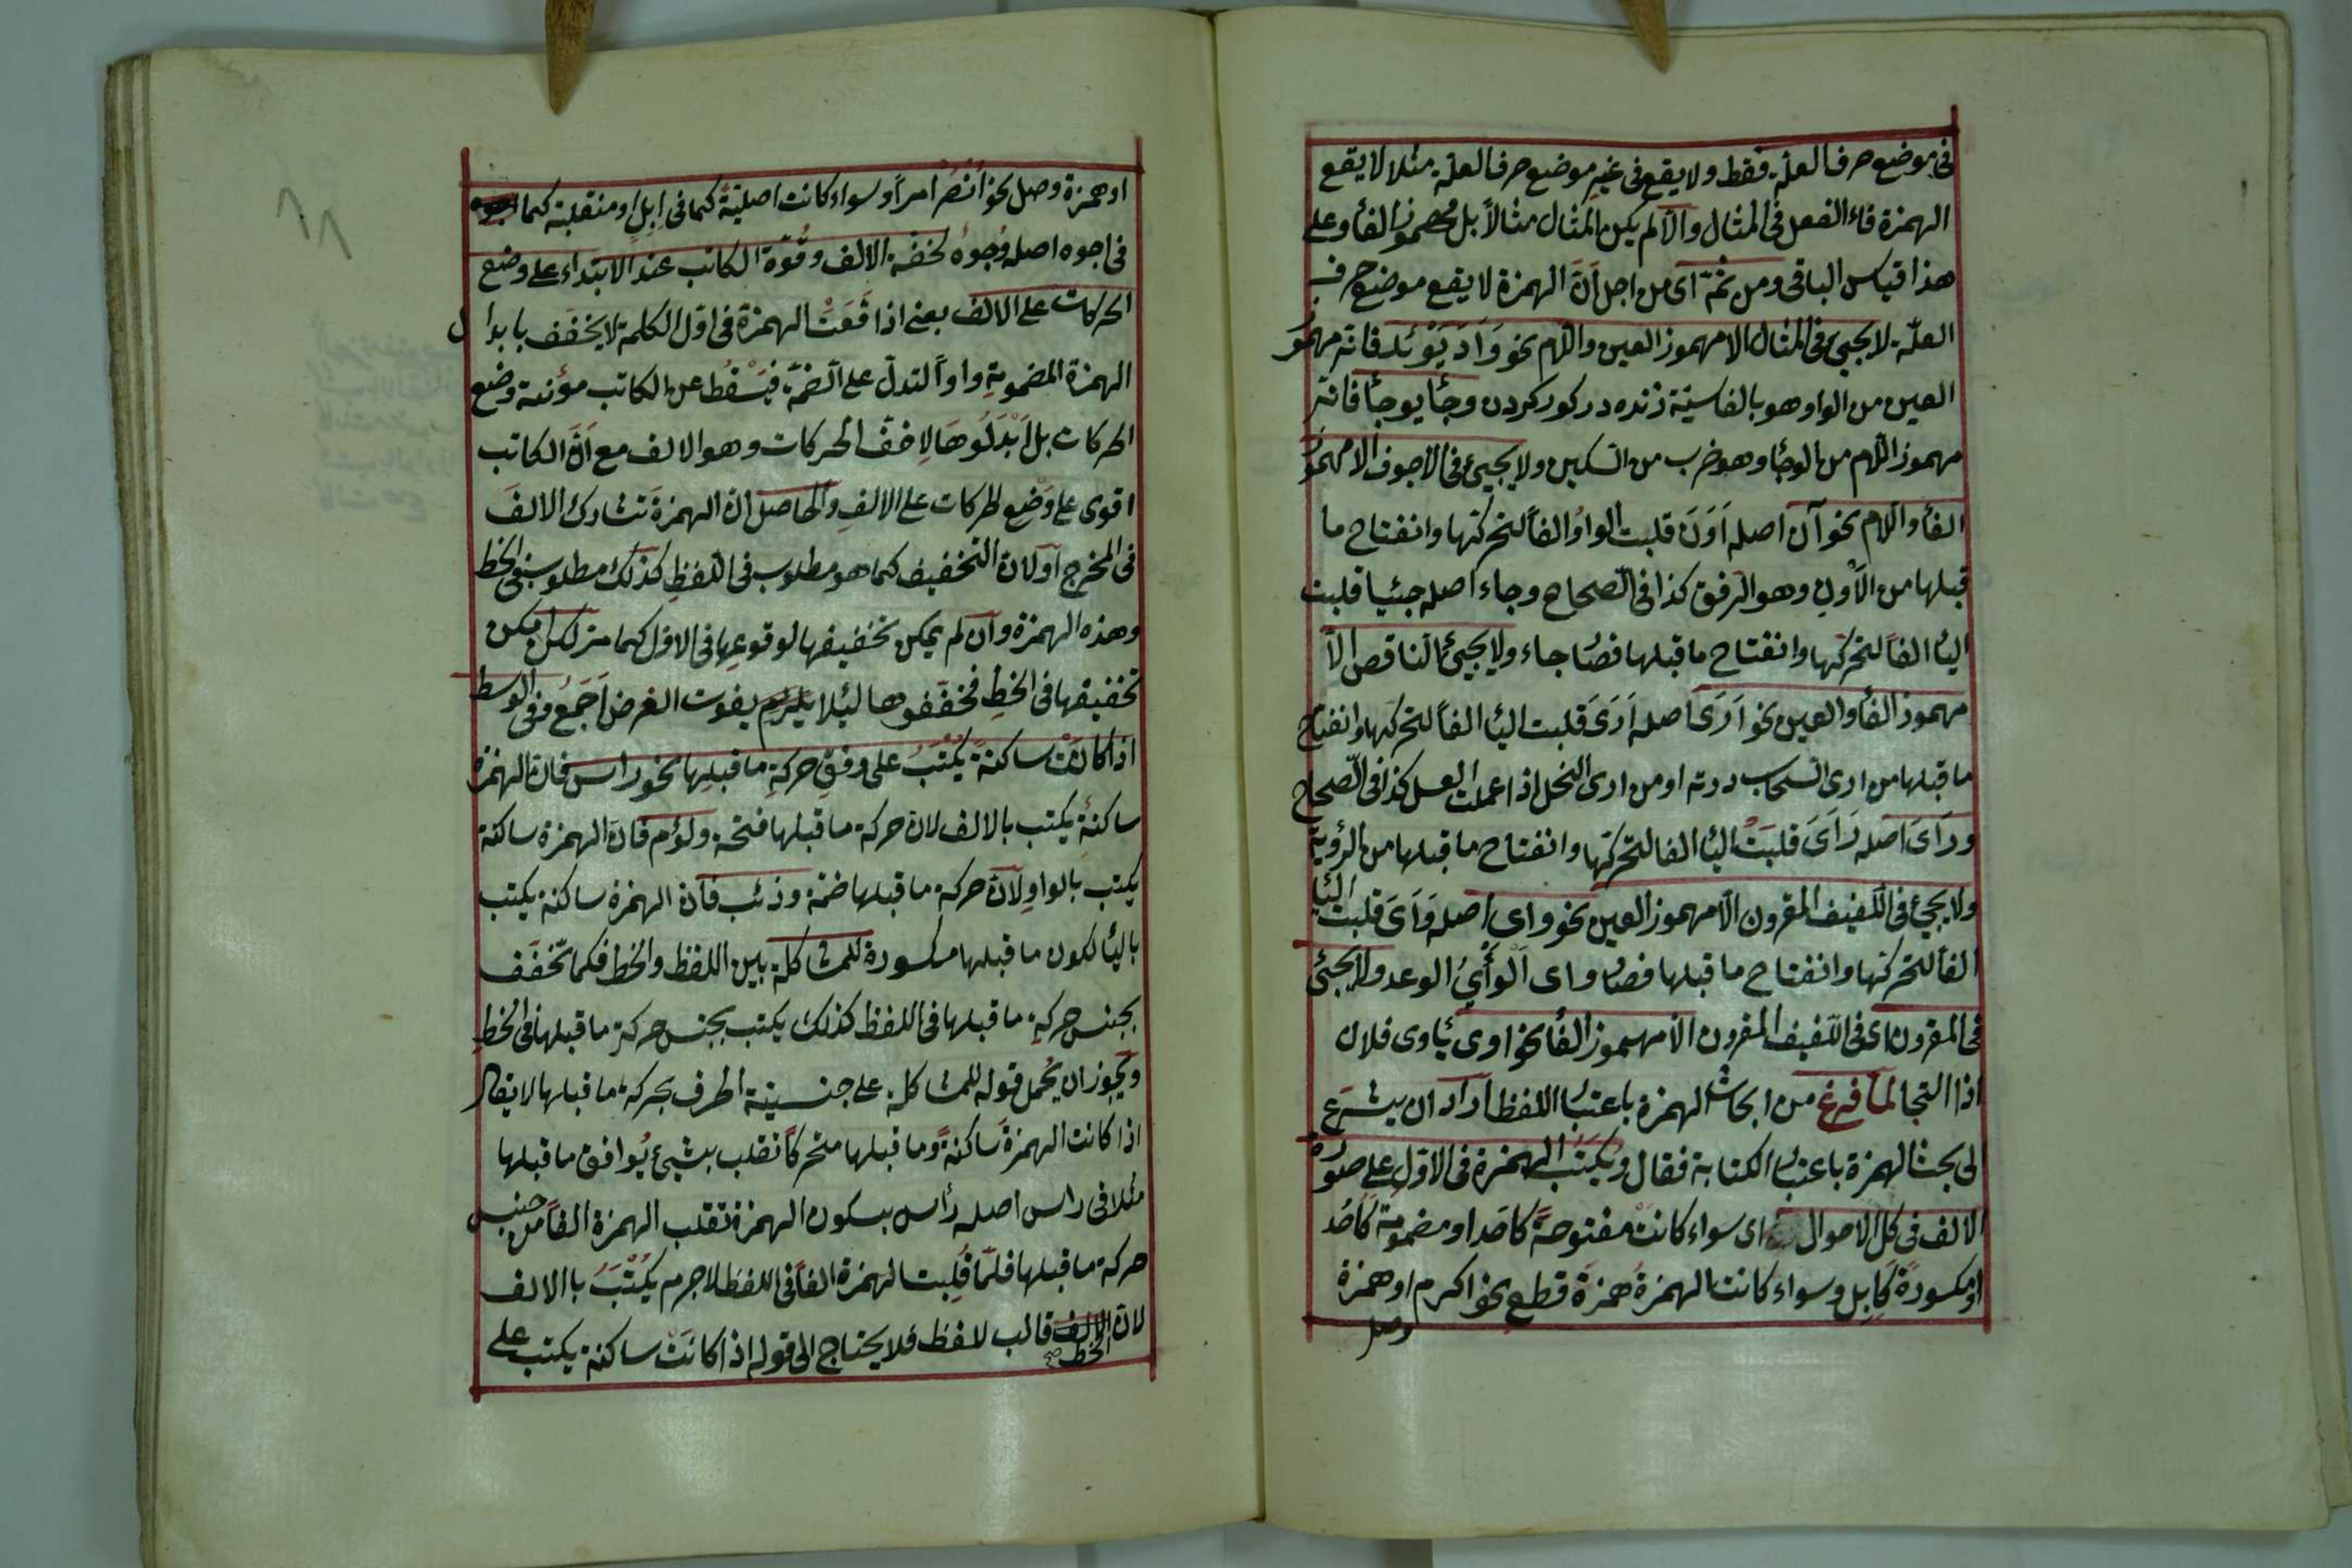 فى موضع حرف العلّة فقط ولا يقع فى غير موضع حرف العلة مثلا لا يقع
الهمزة فاء الفعل فى المثال والا لم يكن المثال مثالاً بل مهموز الفأ وعلى
هذا قياس الباقى ومن ثمّ اى من اجل انّ الهمزة لا يقع موضع حرف
العلّة لا يجئ فى المثال الا مهموز العين واللام نحو وَأَدَ يَوْئَد فانه مهموز
العين من الواو وهو بالفاسيّة زنده در كور كردن وجأ يوجأ فانه
مهموز اللام من الوجأ وهو ضرب من السكين ولا يجئ فى الاجوف الا مهموز
الفأ واللام نحو آن اصله اَوَنَ قلبت الواو الفاً لتحركها وانفتاح ما
قبلها من الأون وهو الرفق كذا فى الصّحاح وجاء اصله جيئا قلبت
اليأ الفاً لتحركها وانفتاح ما قبلها فصار جاء ولا يجئ الناقص الّا
مهموز الفأ والعين نحو اَرَى اصله اَرَىَ قلبت اليأ الفاً لتحركها وانفتاح
ما قبلها من ارى السحاب درته او من ارى النخل اذا عملت العسل كذا فى الصّحاح
ورَاَىَ اصله رَاَىَ قلبَتْ اليأ الفا لتحركها وانفتاح ما قبلها من الرؤية
ولا يجئ فى اللّفيف المقرون الّا مهموز العين نحو واى اصله وَاَىَ قلبت اليأ
الفاً لتحركها وانفتاح ما قبلها فصار واى اَلْوَأْىُ الوعد ولا يجئ
فى المقرون اى فى اللّفيف المقرون الا مهموز الفأ نحو اوى يأوى فلان
اذا التجا لمّا فرغ من ابحاث الهمزة باعتبار اللفظ اراد ان يشرع
لى بحث الهمزة باعتبار الكتابة فقال ويُكتَب الهمزة فى الاوّل على صورة
الالف فى كلّ الاحوال اى سواء كانت مفتوحةً كاَحَد او مضمومة كاُحُد
او مكسورةً كَاِبِل وسواء كانت الهمزةُ همزَةَ قطع نحو اكرم او همزة
وصل
او همزة وصل نحو اُنْصُرْ امراً وسواء كانت اصليّةً كما فى اِبِل او منقلبة كما
فى اجوه اصله وُجوُه لخفّة الالف وقُوّة الكاتب عند الابتداء على وضع
الحركات على الالف يعنى اذا وقَعَتْ الهمزة فى اوّل الكلمة لا يخفّف بابدال
الهمزة المضمومةِ واواً لتدلّ على الضمّة فيَسْقُط عن الكاتب مؤنعة وضع
الحركات بل اَبْدَلُوهَا لِاخفّ الحركات وهو الالف مع اَنّ الكاتب
اقوى على وَضْعِ الحركات على الالفِ والحاصل انّ الهمزةَ تتشارك الالفَ
فى المخرج اَو لان التخفيف كما هو مطلوب فى اللفظِ كذلك مطلوب فى الخط
وهذه الهمزة وان لم يمكن تخفيفها لوقوعها فى الاوّل كما مر لكن امكن
تخفيفها فى الخطِ فخففوها ليئلا يلزم يفوت الغرض اَجمَعُ وفى الوسط
اذا كانَتْ ساكنةً يُكْتَبُ على وفقِ حركةِ ما قبلِها نحو راس فانّ الهمزة
ساكنة يكتب بالالف لان حركة ما قبلها فتحة ولؤم فانّ الهمزة ساكنة
يكتب بالواو لانّ حركة ما قبلها ضمّة وذئب فان الهمزة ساكنة يكتب
باليأ لكون ما قبلها مكسورة للمشاكلة بين اللفظ والخط فكما تخفّف
بجنس حركةِ ما قبلها فى اللفظ كذلك يكتب بجنس حركة ما قبلها فى الخطِ
ويجوز ان يحمل قوله للمشاكلة على جنسيّة الحرف بحركة ما قبلها لا يقال
اذا كانت الهمزة ساكنةً وما قبلها متحركاً تقلب بشيئ يُوافق ما قبلها
مثلا فى راس اصله رأس بسكون الهمزة تقلب الهمزة الفاً من جنس
حركة ما قبلها فلمّا قُلِبت الهمزة الفاً فى اللفظ لاجرم يُكْتَبُ باالالف
لانّ الخط قالب للفظ فلا يحتاج الى قوله اذا كانَتْ ساكنة يكتب على